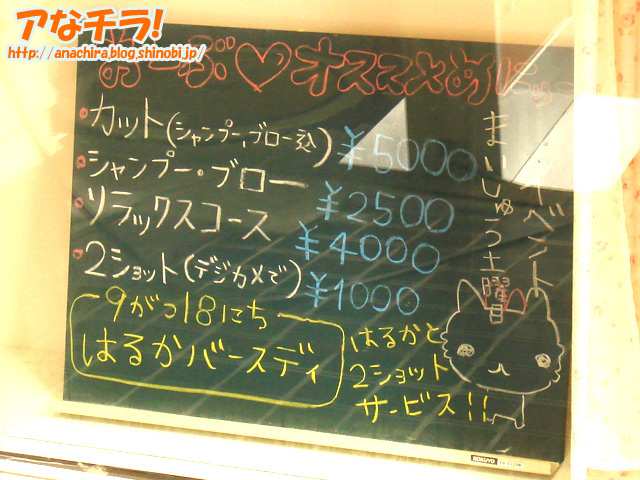 アなチラ!
http://anachira.blog.shinobi.jp/
オススメめにゅー
カット(シャンプー、ブロー込) ¥5000
シャンプー・ブロー ¥2500
リラックスコース ¥4000
2ショット(デジカメで) ¥1000
イベント
まいしゅう土曜日
9がつ18にち
はるかバースディ
はるかと
2ショット
サービス!!
KOKUYO